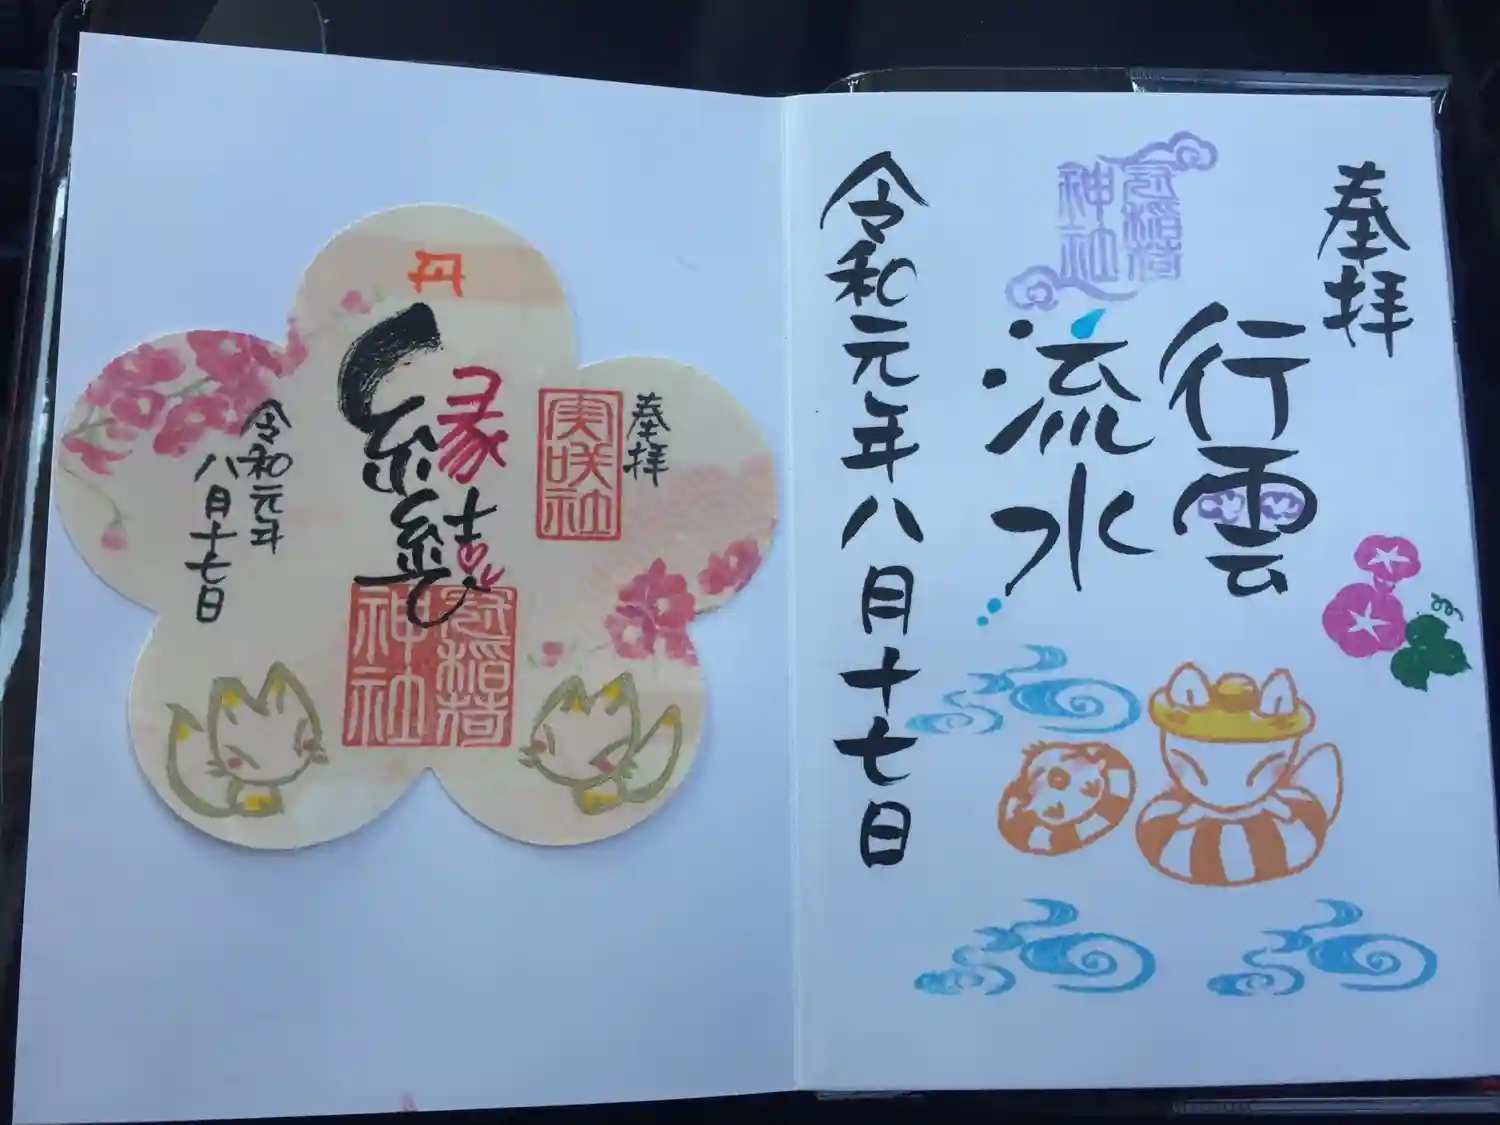 奉拝
行雲
流水
冠稲荷
神社
令和元年八月十七日
奉拝
実咲社
縁結び
冠稲荷
神社
令和元年
八月十七日